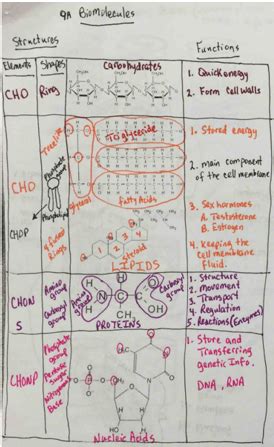 9A Biomolecules
Structures
Functions
Elements
Shapes
Carbohydrates
CHO
Ring
1. Quick energy
2. Form Cell Walls
CHO
CHOP
Treelike
Phosphate group
Phospholipid
4 fused Rings
Glycerol
Triglyceride
Fatty Acids
1 2 3 4
Steroid
LIPIDS
1. Stored energy
2. Main component
of the cell membrane
3. Sex hormones
A. Testosterone
B. Estrogen
4. Keeping the
cell membrane
fluid.
CHON
S
Amino group
Carboxyl group
Amino group
Carboxyl group
PROTEINS
1. Structure
2. Movement
3. Transport
4. Regulation
5. Reactions (Enzymes)
CHONP
Phosphate
Group
Pentose
Sugar
Nitrogenous
Base
Nucleic Acids
1. Store and
Transferring
genetic Info.
DNA, RNA